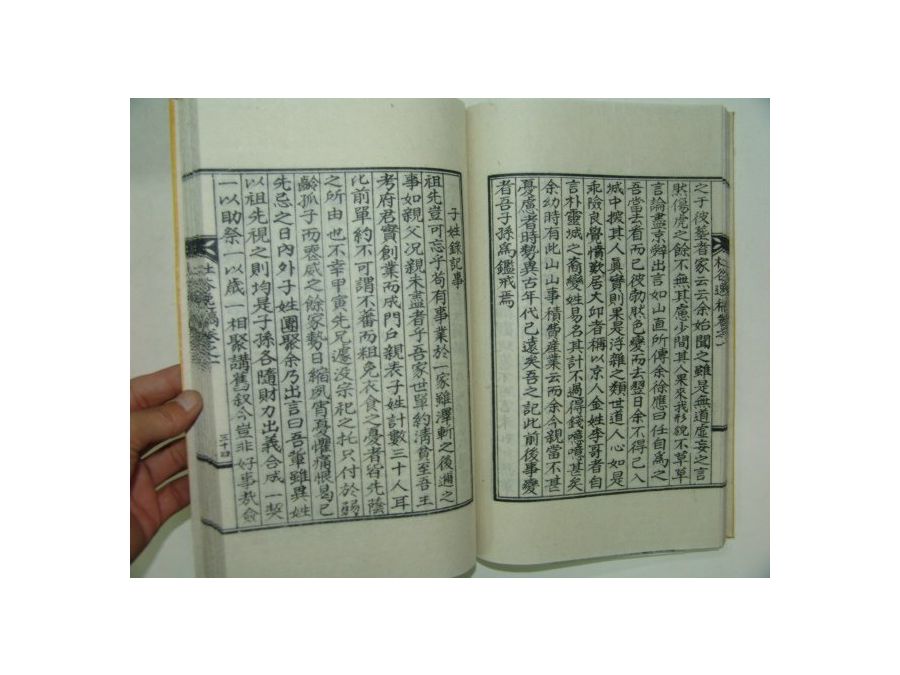 之于彼墓者家云云余始聞之雖是無道虛妄之言
狀傷虎之餘不無其慮少間其人果來我形貌不草草
言論盡京舜出言如山直所傳余徐應曰任自爲之
吾當去看而已彼勃狀色變而去翌日余不得已入
城中搜其人眞實則果是浮雜之類世道人心如是
乖險良覺憤歎居大邱者稱以京人金姓李哥者自
言朴靈城之裔變姓易名其計不過得錢噫噫甚矣
余幼時有此山山事積費産業云而余今親當不甚
憂慮者時勢異古年代已遠矣吾之記此前後事變
者吾子孫爲鑑戒焉
子姓錄記事
祖先豈可忘乎苟有事業於一家雖澤斬之後遡之
事如親父況親未盡者乎吾家世單約淸貧至吾王
考府君實創業而成門戶親表子姓計數三十人耳
比前單約不可謂不蕃而粗免衣食之憂者皆先蔭
之所由也不幸甲寅先兄遽沒宗祀之托只付於弱
齡孤子而喪威之餘家勢日縮夙宵憂懼痛恨曷已
先忌之日內外子姓團聚余乃出言曰吾輩雖異姓
以祖先視之則均是子孫各隨財力出義合成一契
一以助祭一以歲一相聚講舊敍今豈非好事哉僉
三十四